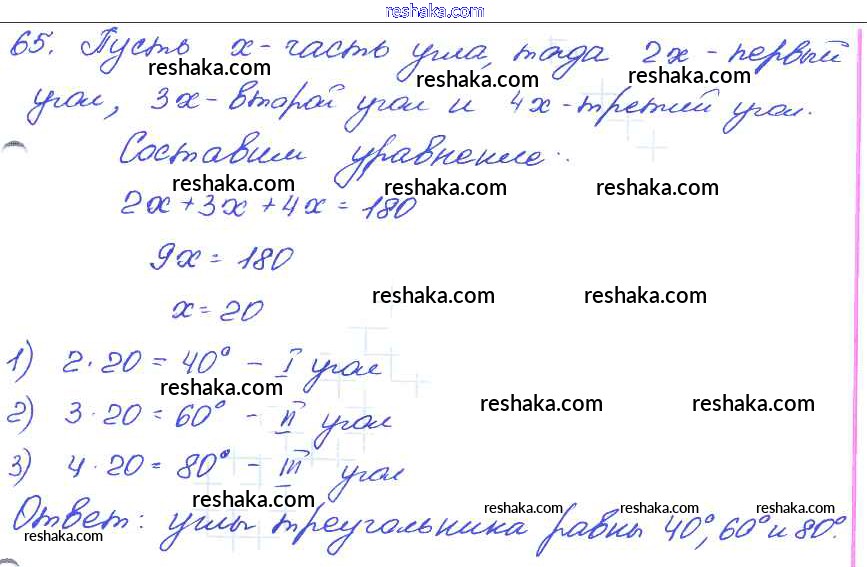 reshaka.com
65. Пусть x - часть угла, тогда 2x - первый
reshaka.com reshaka.com reshaka.com
угол, 3x - второй угол и 4x - третий угол.
Составим уравнение:
reshaka.com reshaka.com reshaka.com
2x + 3x + 4x = 180
9x = 180
reshaka.com reshaka.com
x = 20
1) 2 · 20 = 40° - I угол
reshaka.com reshaka.com reshaka.com
2) 3 · 20 = 60° - II угол
3) 4 · 20 = 80° - III угол
reshaka.com reshaka.com reshaka.com reshaka.com
Ответ: углы треугольника равны 40°, 60° и 80°.
reshaka.com